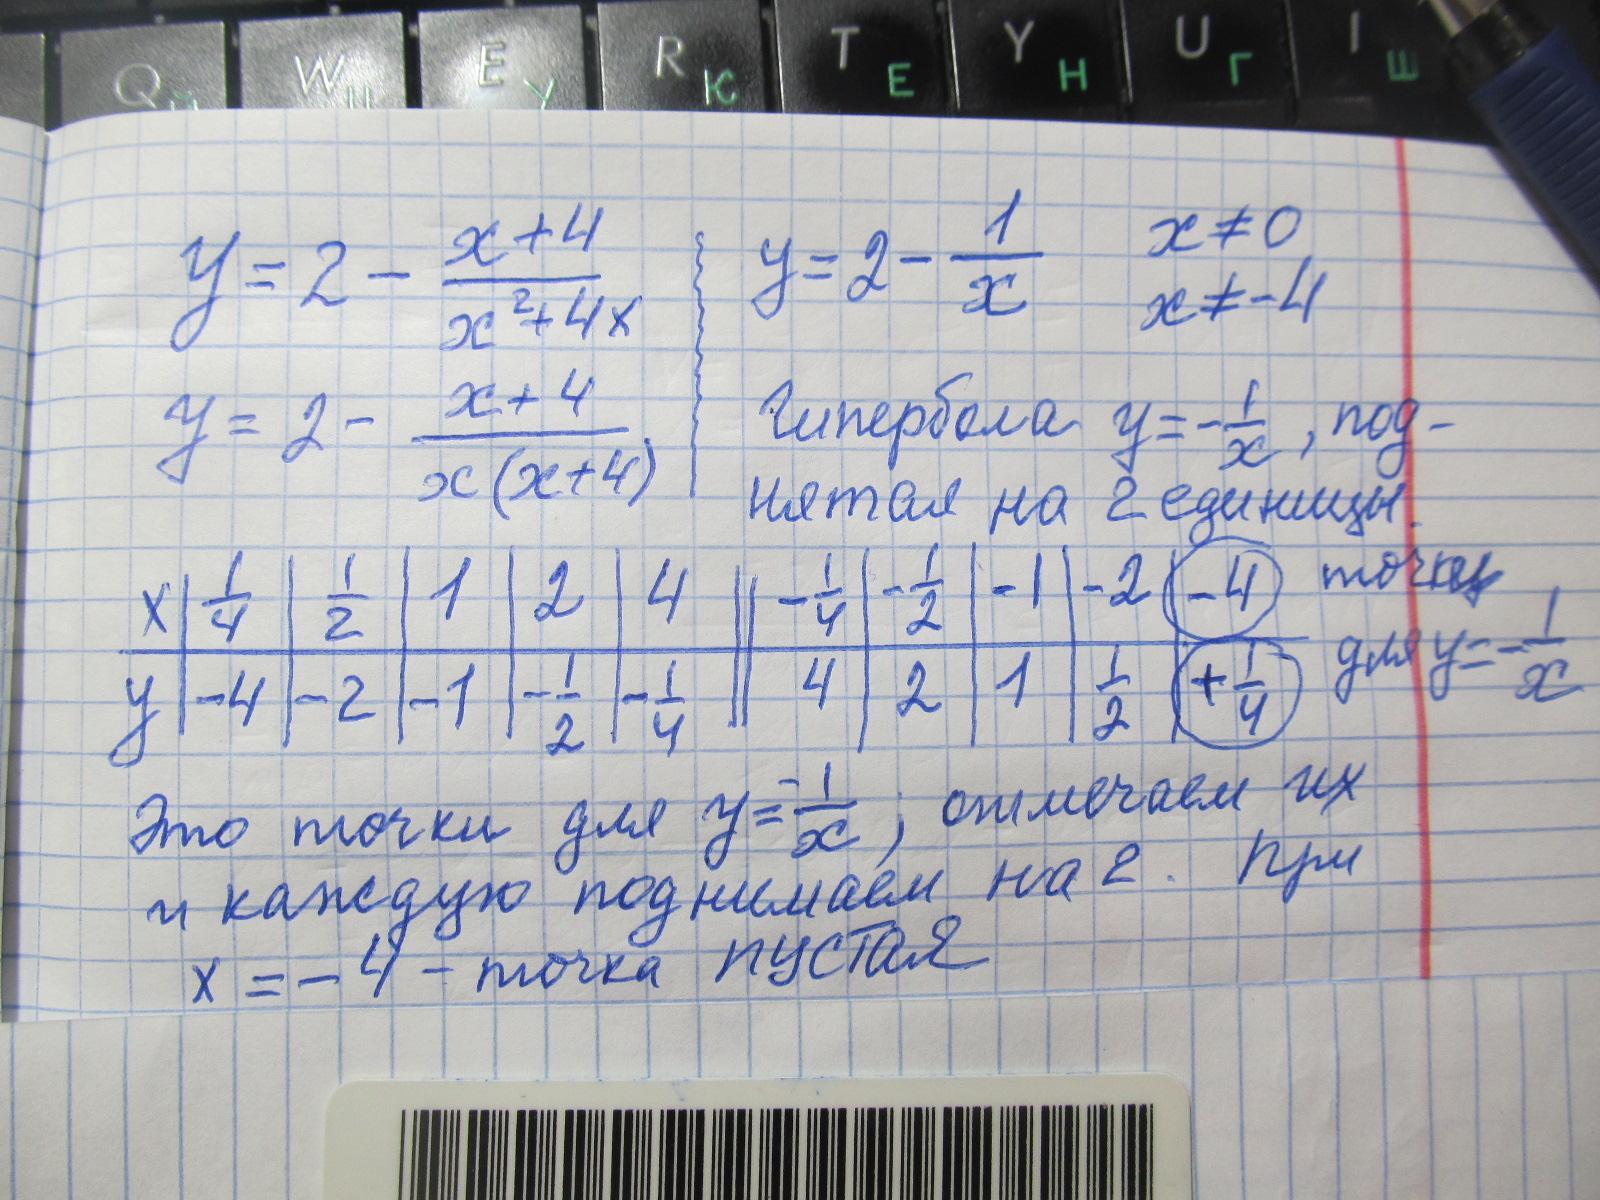 Q Й W Ц E У R К T Е Y Н U Г I Ш
y = 2 - (x+4)/(x²+4x)
y = 2 - (x+4)/(x(x+4))
y = 2 - 1/x x ≠ 0
x ≠ -4
Гипербола y = -1/x, под-
нятая на 2 единицы.
x | 1/4 | 1/2 | 1 | 2 | 4 || -1/4 | -1/2 | -1 | -2 | -4 точки
y | -4 | -2 | -1 | -1/2 | -1/4 || 4 | 2 | 1 | 1/2 | +1/4 для y = -1/x
Это точки для y = -1/x, отмечаем их
и каждую поднимаем на 2. При
x = -4 - точка ПУСТАЯ